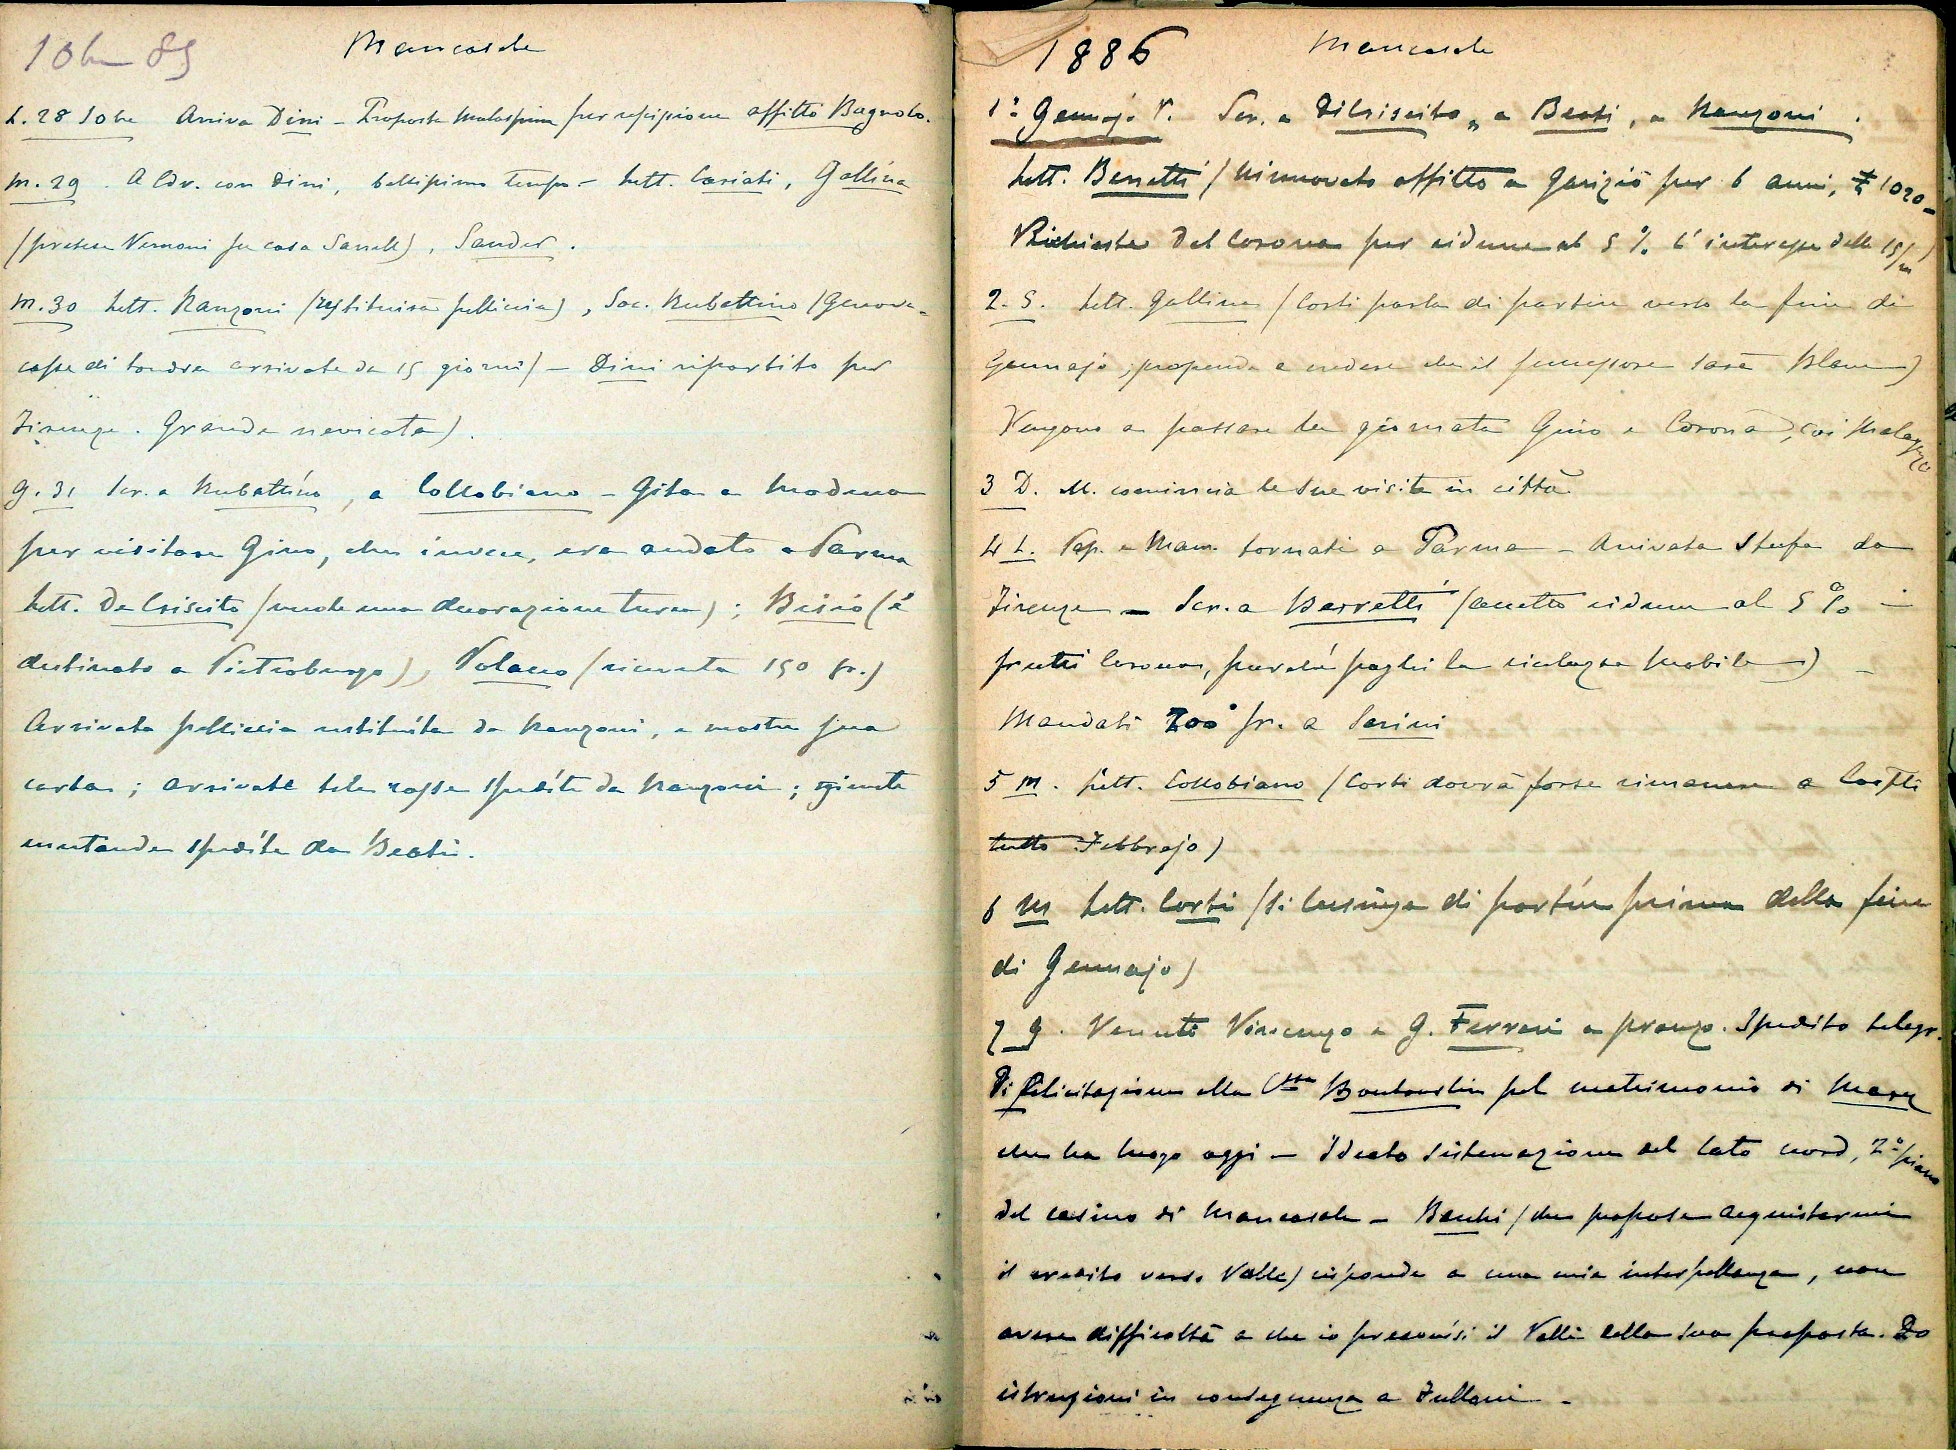 10bre 85 Mancasale
L. 28 10bre Arriva Dini - Proposta Malaspina per rescissione affitto Bagnolo.
M. 29. A Cdv. con Dini, bellissimo tempo - Lett. Cariati, Gallina
(pretese Vernoni per casa), Sander.
M. 30 Lett. Manzoni (restituisca pelliccia), Soc. Rubattino (Genova -
casse di Londra arrivate da 15 giorni) - Dini ripartito per
Firenze. Grande nevicata).
G. 31 Scr. a Rubattino, a Collobiano - Gita a Modena
per visitare Gino, che invece, era andato a Parma
Lett. De Criscito (vuole una decorazione turca); Bisio (è
destinato a Pietroburgo), Volano (ricevuta 150 fr.)
Arrivata pelliccia restituita da Manzoni, e mostre
carta; arrivate tele rosse spedite da Manzoni; giunte
mutande spedite da Beati.
1886 Mancasale
1° Gennajo V. Scr. a Dicriscito, a Beati, a Manzoni.
Lett. Berretti (rinnovato affitto a Garizio per 6 anni, £ 1020 -
Richieste del Corona per ridurre al 5 % l'interesse delle 15/m)
2. S. Lett. Gallina (Corti parla di partire verso la fine di
Gennajo, propende a credere che il successore sarà Blanc)
Vengono a passare la giornata Gino e Corona, coi Malaguzzi
3 D. M. comincia le sue visite in città
4 L. Pap. e Mam. tornati a Parma - Arrivata stufa da
Firenze - Scr. a Berretti (accetto ridurre al 5 % i
frutti Corona, purchè paghi la ricchezza mobile) -
Mandati 200 fr. a Serini
5 M. Lett. Collobiano (Corti dovrà forse rimanere a Costli
tutto Febbrajo)
6 M Lett. Corti (si lusinga di partire prima della fine
di Gennajo)
7 G. Venuti Vincenzo e G. Ferrari a pranzo. Spedito telegr.
di felicitazione alla Cssa Boutourlin pel matrimonio di Mary
che ha luogo oggi - Ideata sistemazione del lato nord, 2° piano
del casino di Mancasale - Banchi (che propose acquistarmi
il credito verso Valli) risponde a una mia interpellanza, non
avere difficoltà a che io preavvisi il Valli della sua proposta. Do
istruzioni in conseguenza a Fullani -